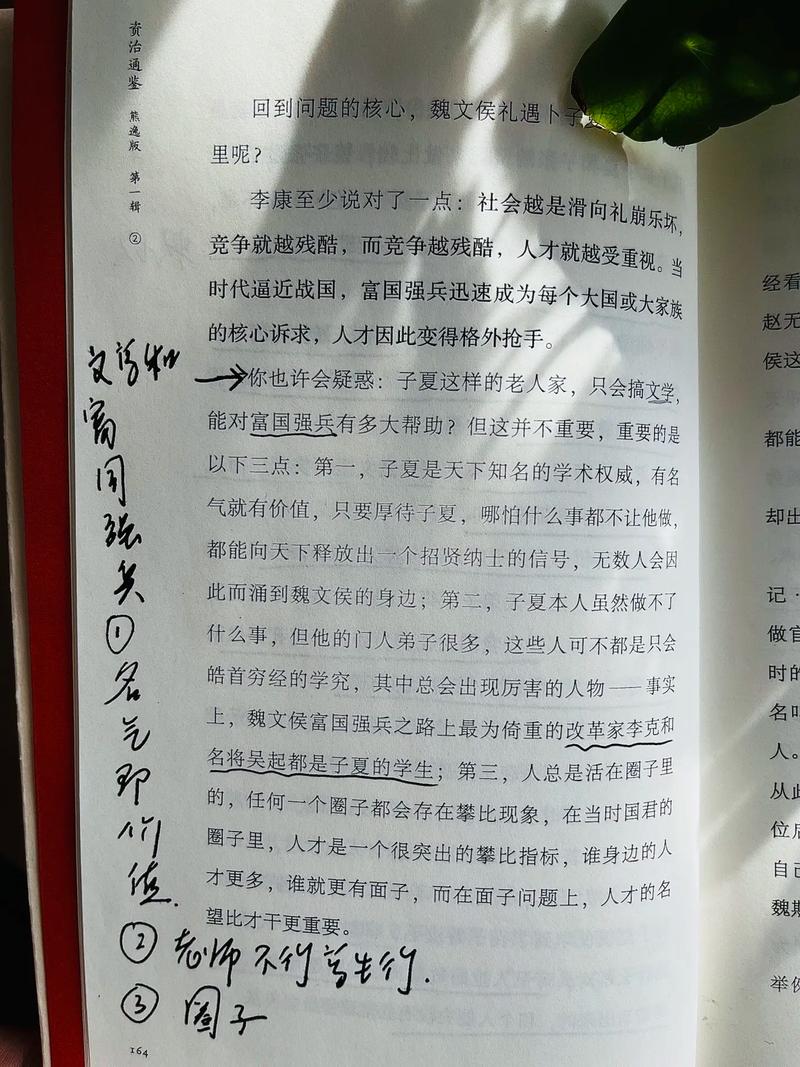 资治通鉴 熊逸版 第一辑 ②
回到问题的核心，魏文侯礼遇卜子
里呢？
李康至少说对了一点：社会越是滑向礼崩乐坏，
竞争就越残酷，而竞争越残酷，人才就越受重视。当
时代逼近战国，富国强兵迅速成为每个大国或大家族
的核心诉求，人才因此变得格外抢手。
你也许会疑惑：子夏这样的老人家，只会搞文学，
能对富国强兵有多大帮助？但这并不重要，重要的是
以下三点：第一，子夏是天下知名的学术权威，有名
气就有价值，只要厚待子夏，哪怕什么事都不让他做，
都能向天下释放出一个招贤纳士的信号，无数人会因
此而涌到魏文侯的身边；第二，子夏本人虽然做不了
什么事，但他的门人弟子很多，这些人可不都是只会
皓首穷经的学究，其中总会出现厉害的人物——事实
上，魏文侯富国强兵之路上最为倚重的改革家李克和
名将吴起都是子夏的学生；第三，人总是活在圈子里
的，任何一个圈子都会存在攀比现象，在当时国君的
圈子里，人才是一个很突出的攀比指标，谁身边的人
才更多，谁就更有面子，而在面子问题上，人才的名
望比才干更重要。
文学和
富
国
强
兵
①
名
气
即
价
值.
② 老师不行学生行.
③ 圈子
164
经看
赵无
侯这
都能
却出
记·
做官
时的
名叫
人。
从此
位后
自己
魏斯
举例